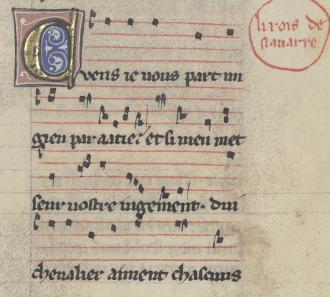 Cuens ie uous part un
gieu par aatie. et si men met
seur uostre iugement. dui
cheualier aiment chascuns
li rois de
nauarre